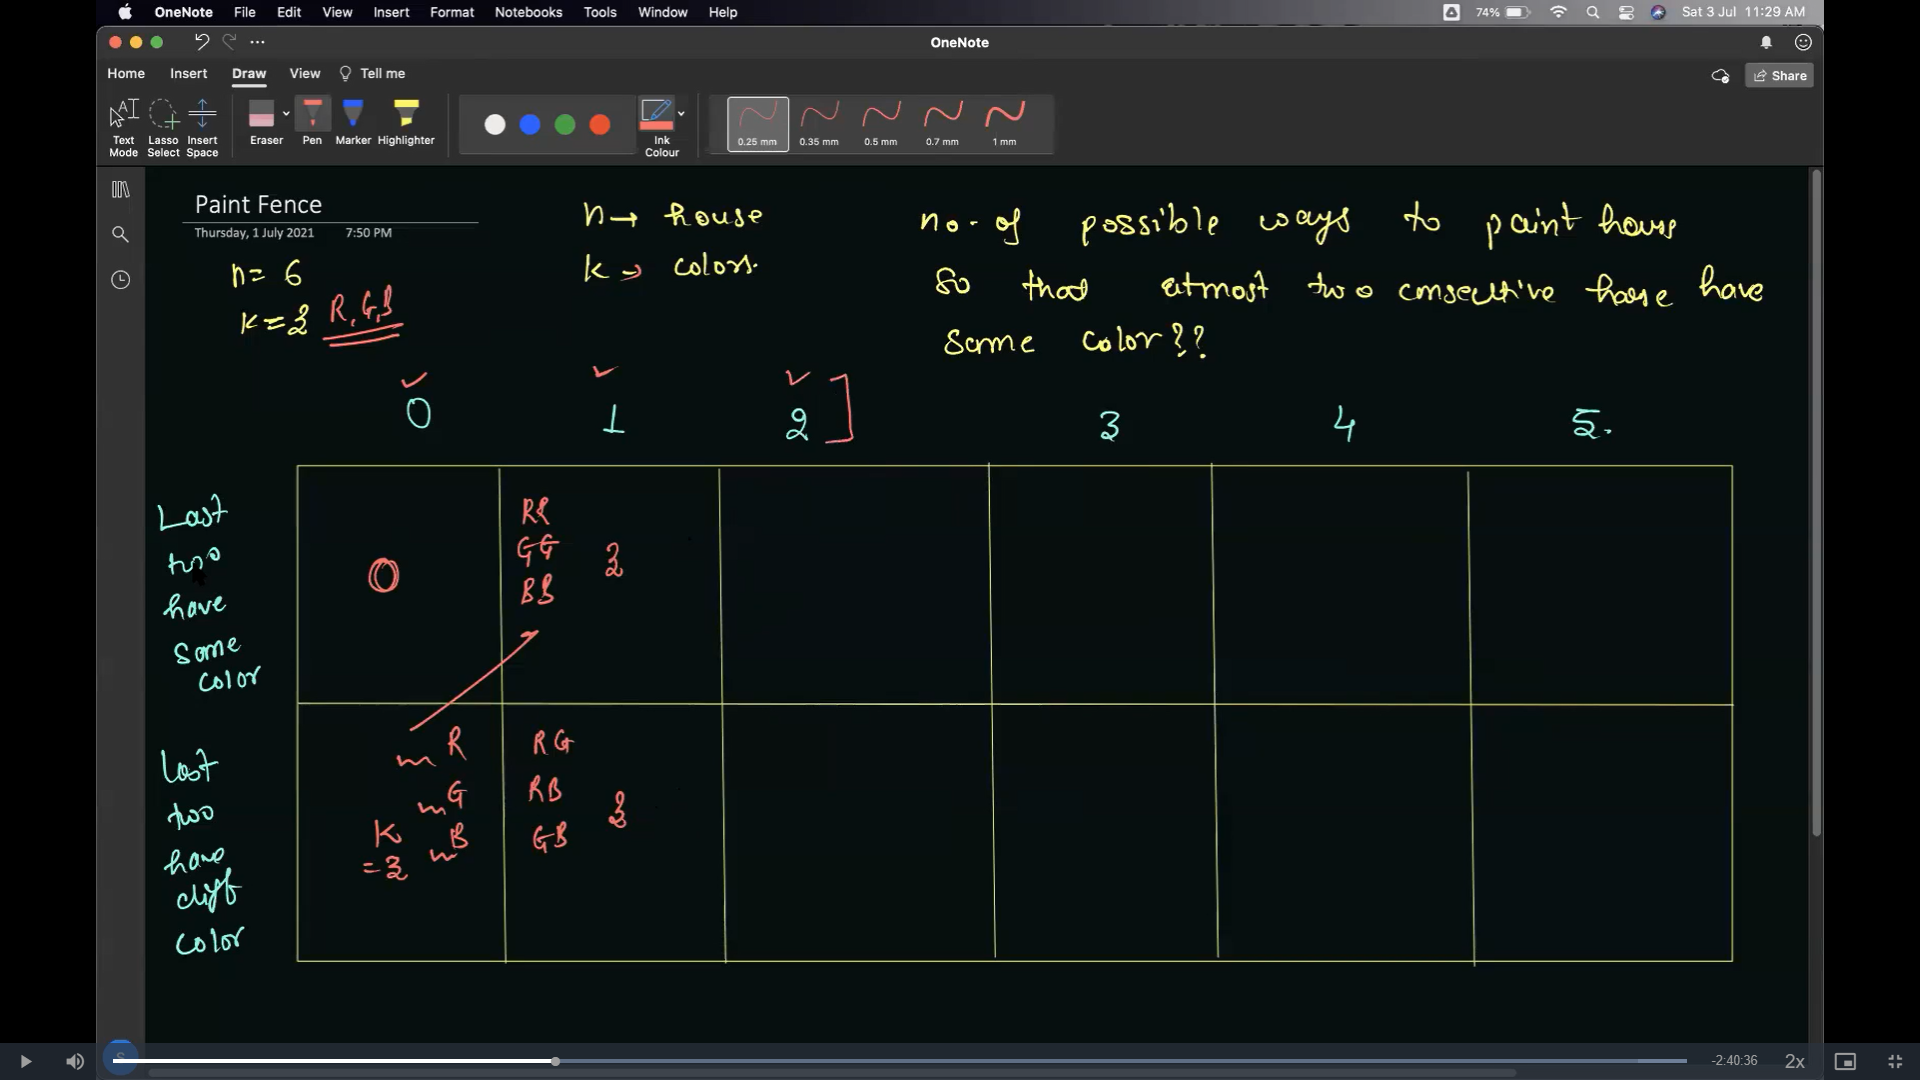 OneNote File Edit View Insert Format Notebooks Tools Window Help 74% Sat 3 Jul 11:29 AM
OneNote
Home Insert Draw View Tell me Share
Text Mode Lasso Select Insert Space Eraser Pen Marker Highlighter Ink Colour 0.25 mm 0.35 mm 0.5 mm 0.7 mm 1 mm
Paint Fence
Thursday, 1 July 2021 7:50 PM
n → house
k → colors.
no. of possible ways to paint house
So that atmost two consecutive house have
same color??
n = 6
k = 3 R, G, B
0 1 2 ] 3 4 5.
Last
two
have
same
color
0
RR
GG
BB
3
last
two
have
diff
color
R
G
B
K
= 3
RG
RB
GB
3
S
-2:40:36 2x